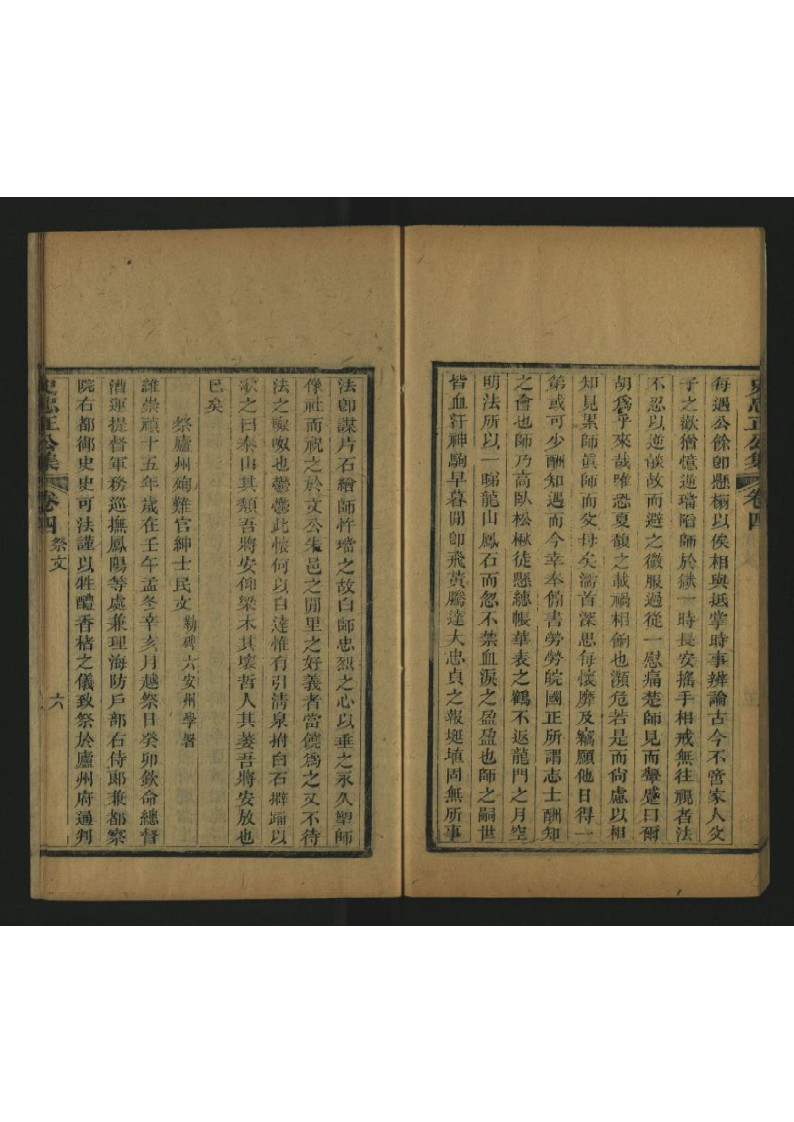 史忠正公集 卷四
每遇公餘卽懸榻以俟相與抵掌時事辨論古今不啻家人父
子之歡猶憶逆璫陷師於獄一時長安搖手相戒無往視者法
不忍以逆燄故而避之微服過從一慰痛楚師見而顰蹙曰爾
胡爲乎來哉唯恐夏馥之載禍相餉也瀕危若是而尙慮以相
知見累師眞師而父母矣濡首深思每懷靡及竊願他日得一
第或可少酬知遇而今幸奉簡書勞勞皖國正所謂志士酬知
之會也師乃高臥松楸徒懸繐帳華表之鶴不返龍門之月空
明法所以一睇龍山鳳石而忽不禁血淚之盈盈也師之嗣世
皆血汗神駒早暮閒卽飛黃騰達大忠貞之報埏埴固無所事
法卽謀片石繪師忤璫之故白師忠烈之心以垂之永久塑師
像社而祝之於文公朱邑之閒里之好義者當饒爲之又不待
法之喚呶也虆虆此懷何以自達惟有引淸泉拊白石擗踊以
歌之曰泰山其頹吾將安仰梁木其壞哲人其萎吾將安放也
已矣
祭廬州殉難官紳士民文 勒碑六安州學署
維崇禎十五年歲在壬午孟冬辛亥月越祭日癸卯欽命總督
漕運提督軍務巡撫鳳陽等處兼理海防戶部右侍郞兼都察
院右都御史史可法謹以牲醴香楮之儀致祭於廬州府通判
史忠正公集 卷四 祭文 六